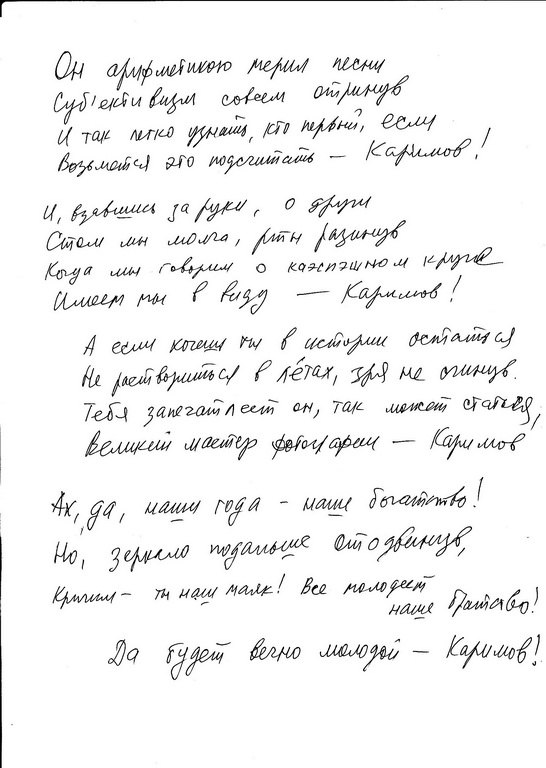 Он арифметикою мерил песни
Суб'ективизм совсем отринув
И так легко узнать, кто первый, если
Возьмется это подсчитать — Каримов!
И, взявшись за руки, о други
Стоим мы молча, рты разинув
Когда мы говорим о каэспэшном круге
Имеем мы в виду — Каримов!
А если хочешь ты в истории остаться
Не раствориться в ле́тах, зря не сгинув.
Тебя запечатлеет он, так может статься,
Великий мастер фотографии — Каримов
Ах, да, наши года - наше богатство!
Но, зеркало подальше отодвинув,
Кричим — ты наш маяк! Все молодеет
наше братство!
Да будет вечно молодой — Каримов!